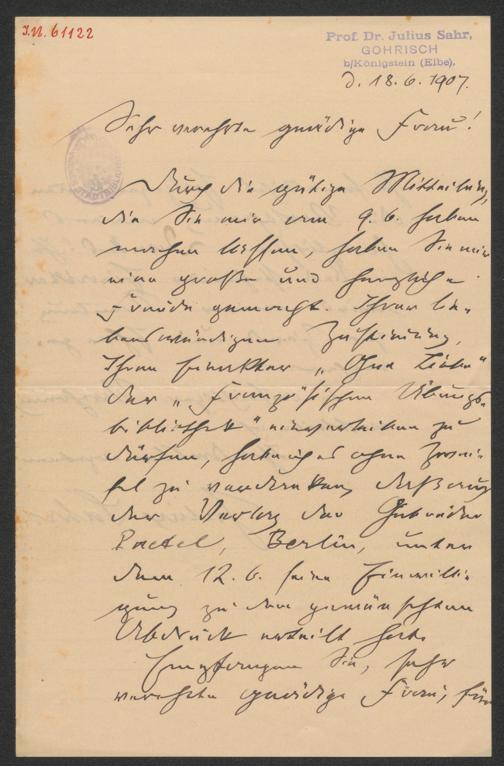 I.N. 61122
Prof. Dr. Julius Sahr,
GOHRISCH
b/Königstein (Elbe).
d. 18.6.1907.
Sehr verehrte gnädige Frau!
Durch die gütige Mitteilung,
die Sie mir am 9.6. haben
machen lassen, haben Sie mir
eine große und herzliche
Freude gemacht. Ihrer lie-
benswürdigen Zustimmung,
Ihren Einakter „Ohne Liebe"
der „Französischen Übungs-
bibliothek" einverleiben zu
dürfen, habe ich es ohne Zwei-
fel zu verdanken, daß auch
der Verlag der Gebrüder
Paetel, Berlin, unter
dem 12.6. seine Einwilli-
gung zu dem gewünschten
Abdruck erteilt hat.
Empfangen Sie, sehr
verehrte gnädige Frau, für